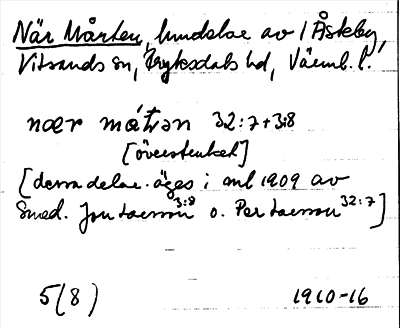 När Mårten, hundelar av 1 Åskeby,
Vitsands sn, Fryksdals hd, Värml. l.
nær má̄tən 32:7+3:8
[överstruket]
[denna delar. äges i ml 1909 av
Smed. Jon Larsson 3:8 o. Per Larsson 32:7]
5(8) 1910-16